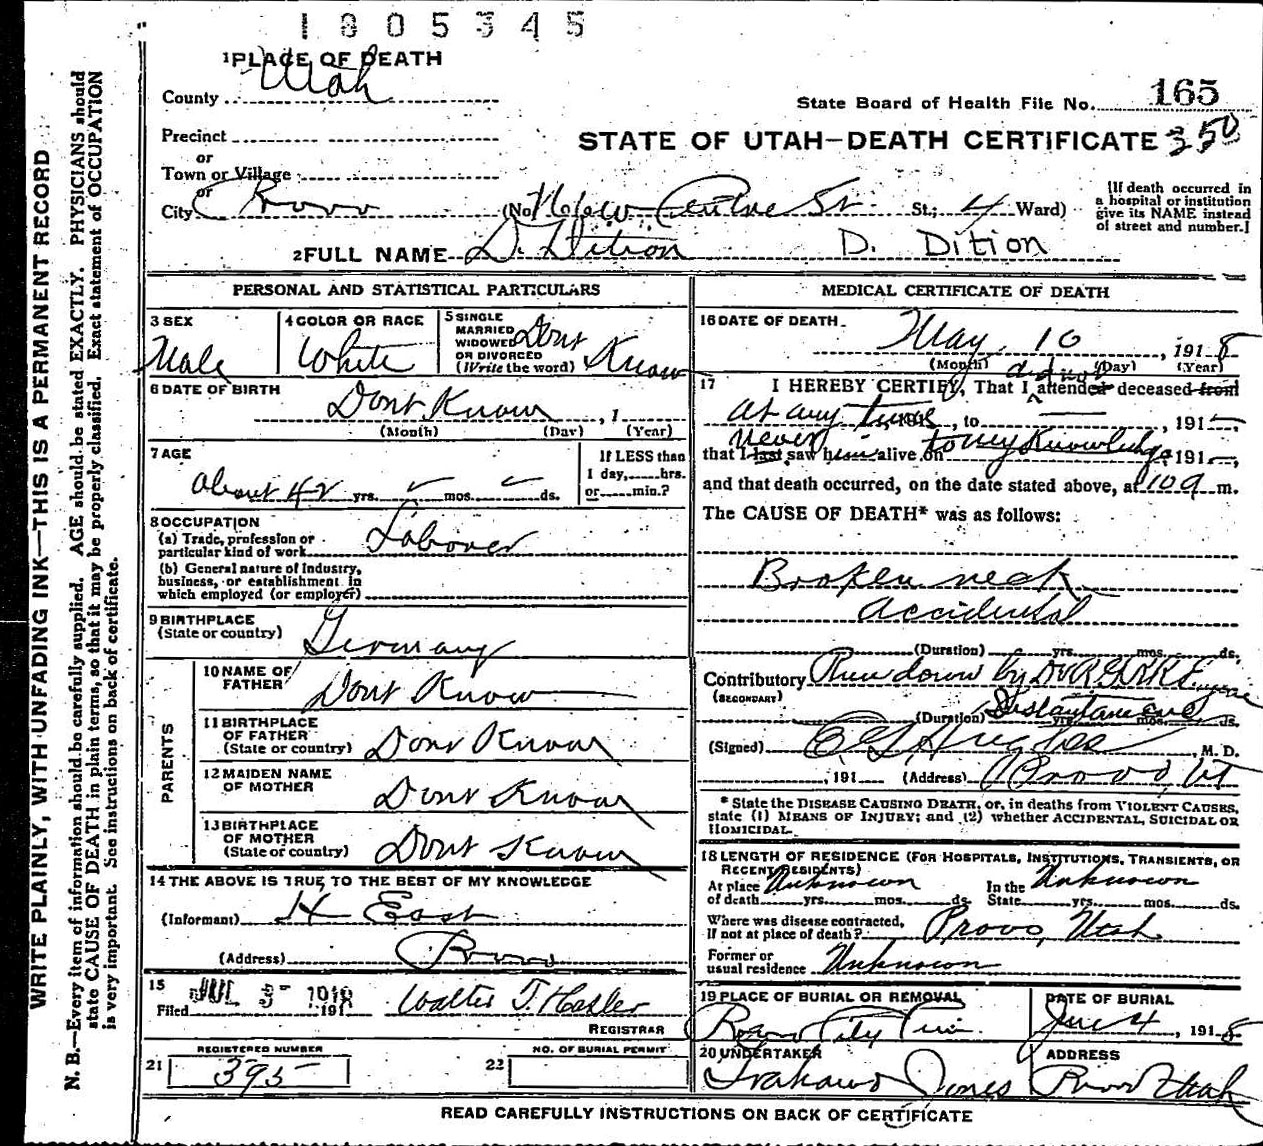 1805345
1 PLACE OF DEATH
County Utah
State Board of Health File No. 165
Precinct
STATE OF UTAH—DEATH CERTIFICATE 350
or
Town or Village
or
City Provo (No. Centre St. St.; 4 Ward)
[If death occurred in
a hospital or institution
give its NAME instead
of street and number.]
2 FULL NAME D. Dition D. Dition
PERSONAL AND STATISTICAL PARTICULARS
3 SEX
Male
4 COLOR OR RACE
White
5 SINGLE
MARRIED
WIDOWED
OR DIVORCED
(Write the word)
Dont Know
6 DATE OF BIRTH
Dont Know, 1
(Month) (Day) (Year)
7 AGE
About 42 yrs. mos. ds.
If LESS than
1 day,......hrs.
or......min.?
8 OCCUPATION
(a) Trade, profession or
particular kind of work Laborer
(b) General nature of Industry,
business, or establishment in
which employed (or employer)
9 BIRTHPLACE
(State or country) Germany
PARENTS
10 NAME OF
FATHER Dont Know
11 BIRTHPLACE
OF FATHER
(State or country) Dont Know
12 MAIDEN NAME
OF MOTHER Dont Know
13 BIRTHPLACE
OF MOTHER
(State or country) Dont Know
14 THE ABOVE IS TRUE TO THE BEST OF MY KNOWLEDGE
(Informant) H East
(Address) Provo
15
Filed JUL 5 1918 191 Walter T. Hasler
REGISTRAR
21 REGISTERED NUMBER
395
22 NO. OF BURIAL PERMIT
MEDICAL CERTIFICATE OF DEATH
16 DATE OF DEATH
May 10, 1918
(Month) (Day) (Year)
17 I HEREBY CERTIFY, That I did not attended deceased from
at any time, to, 191
that I last never saw him alive on to my Knowledge, 191
and that death occurred, on the date stated above, at 10 a m.
The CAUSE OF DEATH* was as follows:
Broken neck
Accidental
(Duration) yrs. mos. ds.
Contributory Run down by D&RGRR Engine
(SECONDARY)
(Duration) Instantaneous yrs. mos. ds.
(Signed) Hughes, M. D.
, 191 (Address) Provo, Ut
* State the DISEASE CAUSING DEATH, or, in deaths from VIOLENT CAUSES,
state (1) MEANS OF INJURY; and (2) whether ACCIDENTAL, SUICIDAL OR
HOMICIDAL.
18 LENGTH OF RESIDENCE (FOR HOSPITALS, INSTITUTIONS, TRANSIENTS, OR
RECENT RESIDENTS)
At place Unknown In the Unknown
of death yrs. mos. ds. State yrs. mos. ds.
Where was disease contracted,
if not at place of death? Provo, Utah
Former or
usual residence Unknown
19 PLACE OF BURIAL OR REMOVAL
Provo City
DATE OF BURIAL
June 4, 1918
20 UNDERTAKER
Jones
ADDRESS
Provo Utah
READ CAREFULLY INSTRUCTIONS ON BACK OF CERTIFICATE
WRITE PLAINLY, WITH UNFADING INK—THIS IS A PERMANENT RECORD
N. B.—Every item of information should be carefully supplied. AGE should be stated EXACTLY. PHYSICIANS should
state CAUSE OF DEATH in plain terms, so that it may be properly classified. Exact statement of OCCUPATION
is very important. See instructions on back of certificate.